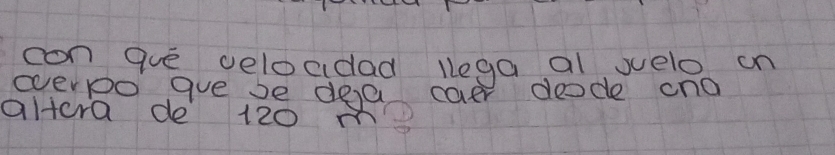 con qué velocidad llega al suelo un
cuerpo que se deja caer desde una
altura de 120 m?